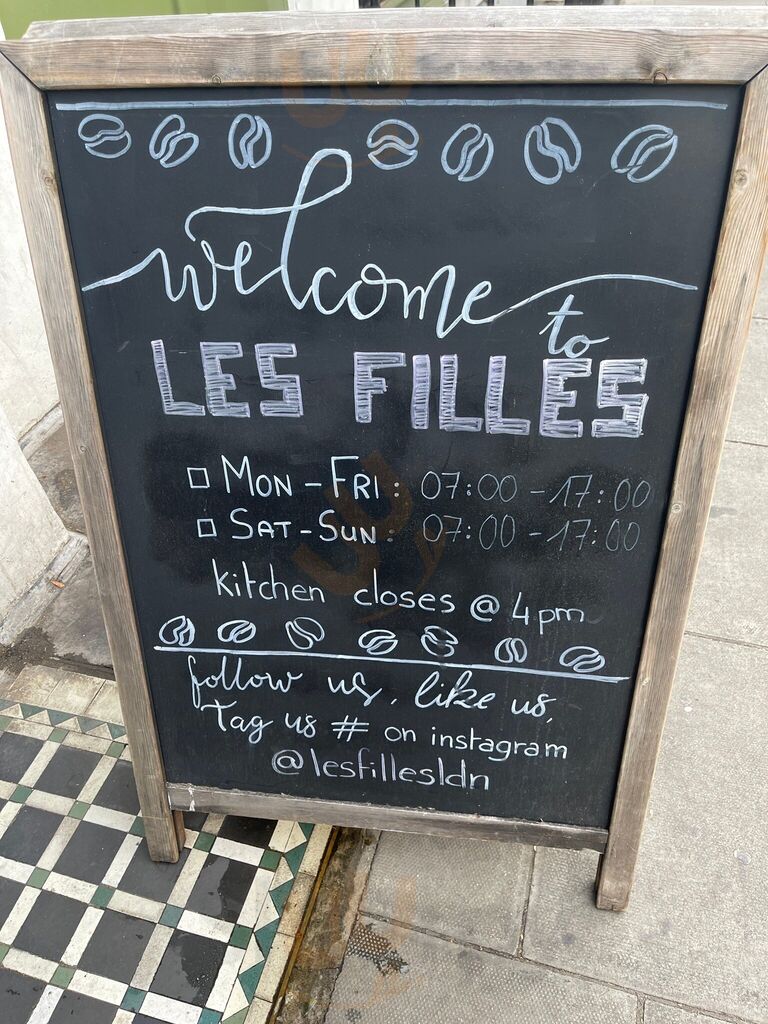 welcome
to
LES FILLES
□ MON - FRI: 07:00 - 17:00
□ SAT - SUN: 07:00 - 17:00
kitchen closes @ 4pm
follow us, like us,
Tag us # on instagram
@lesfillesldn